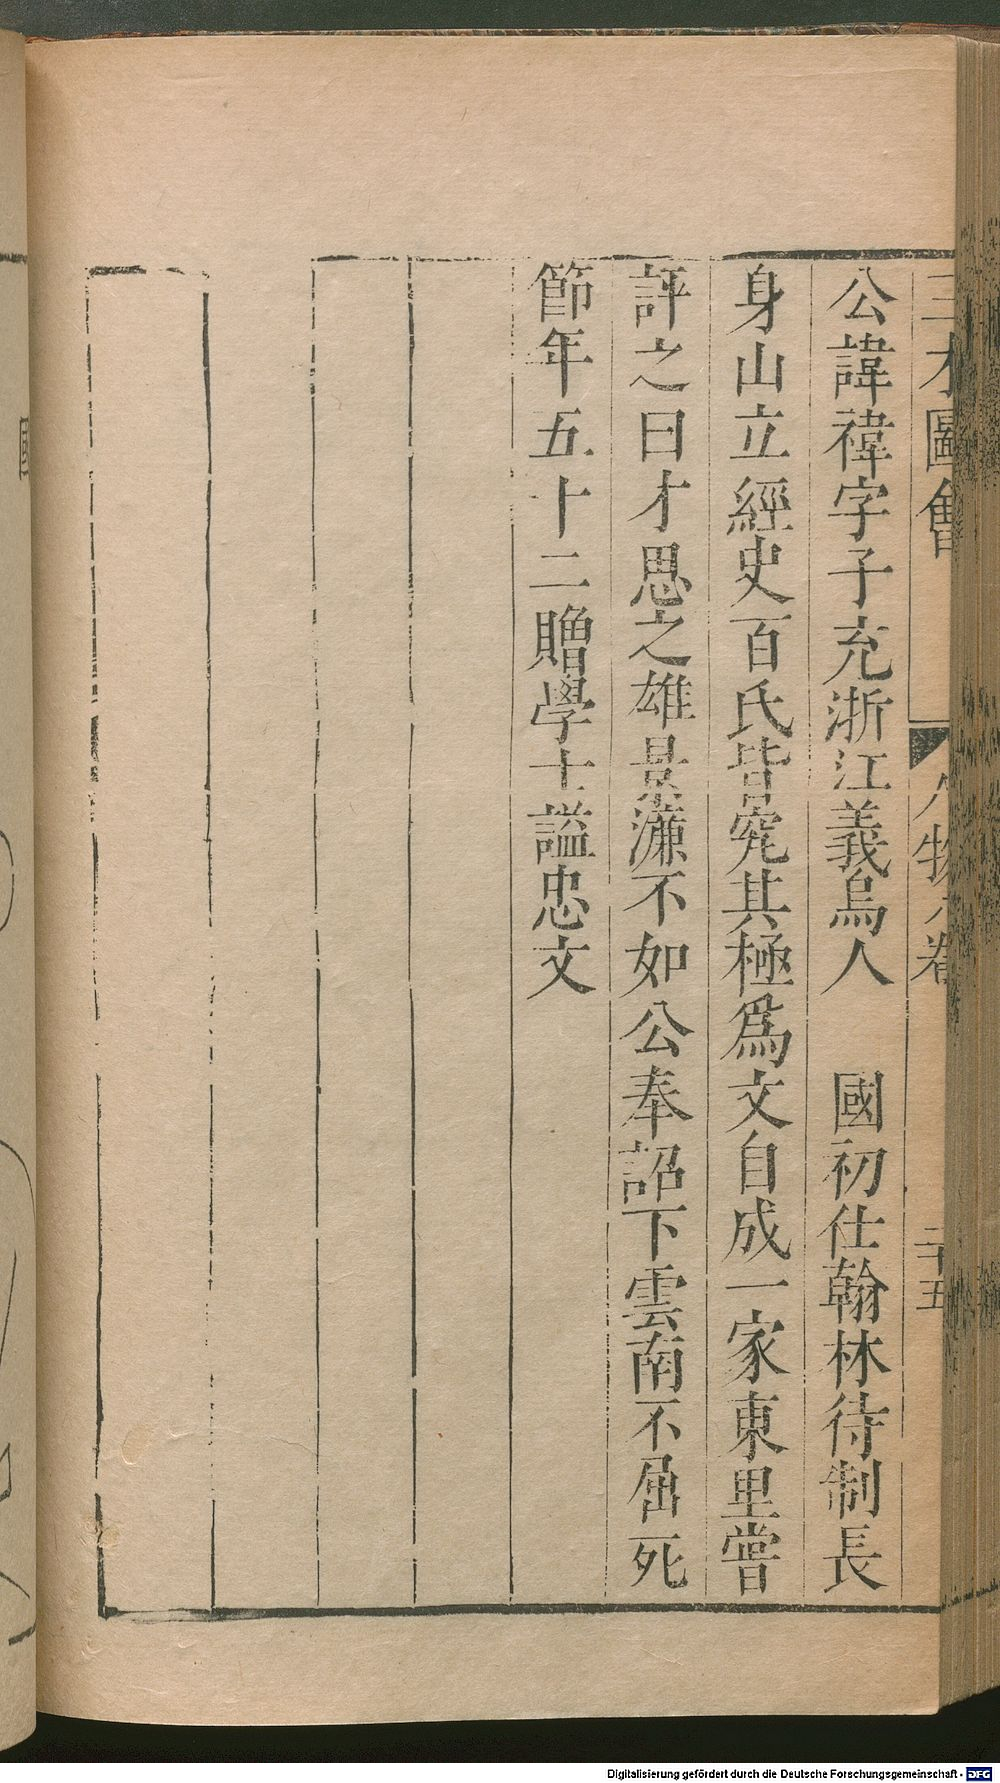 三才圖會
人物六卷
二十五
公諱禕字子充浙江義烏人　國初仕翰林待制長
身山立經史百氏皆究其極爲文自成一家東里嘗
評之曰才思之雄景濂不如公奉詔下雲南不屈死
節年五十二贈學士謚忠文
Digitalisierung gefördert durch die Deutsche Forschungsgemeinschaft - DFG